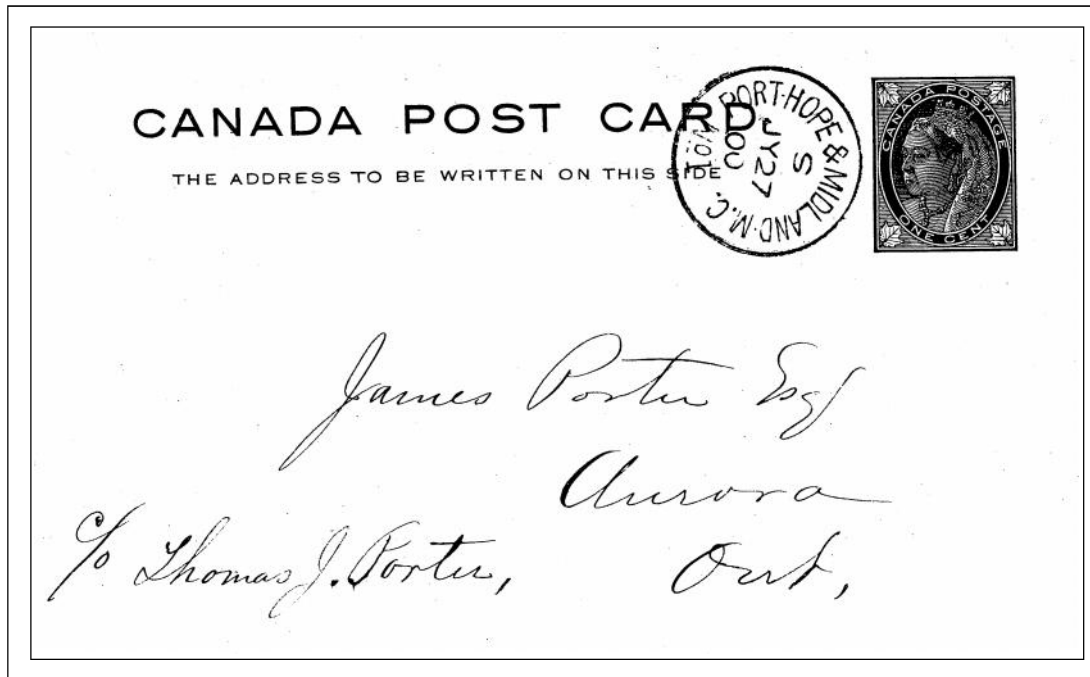 CANADA POST CARD
THE ADDRESS TO BE WRITTEN ON THIS SIDE
PORT·HOPE & MIDLAND·M.C.
S
JY 27
00
CANADA POSTAGE
ONE CENT
James Porter Esq
Aurora
c/o Thomas J. Porter,
Ont,